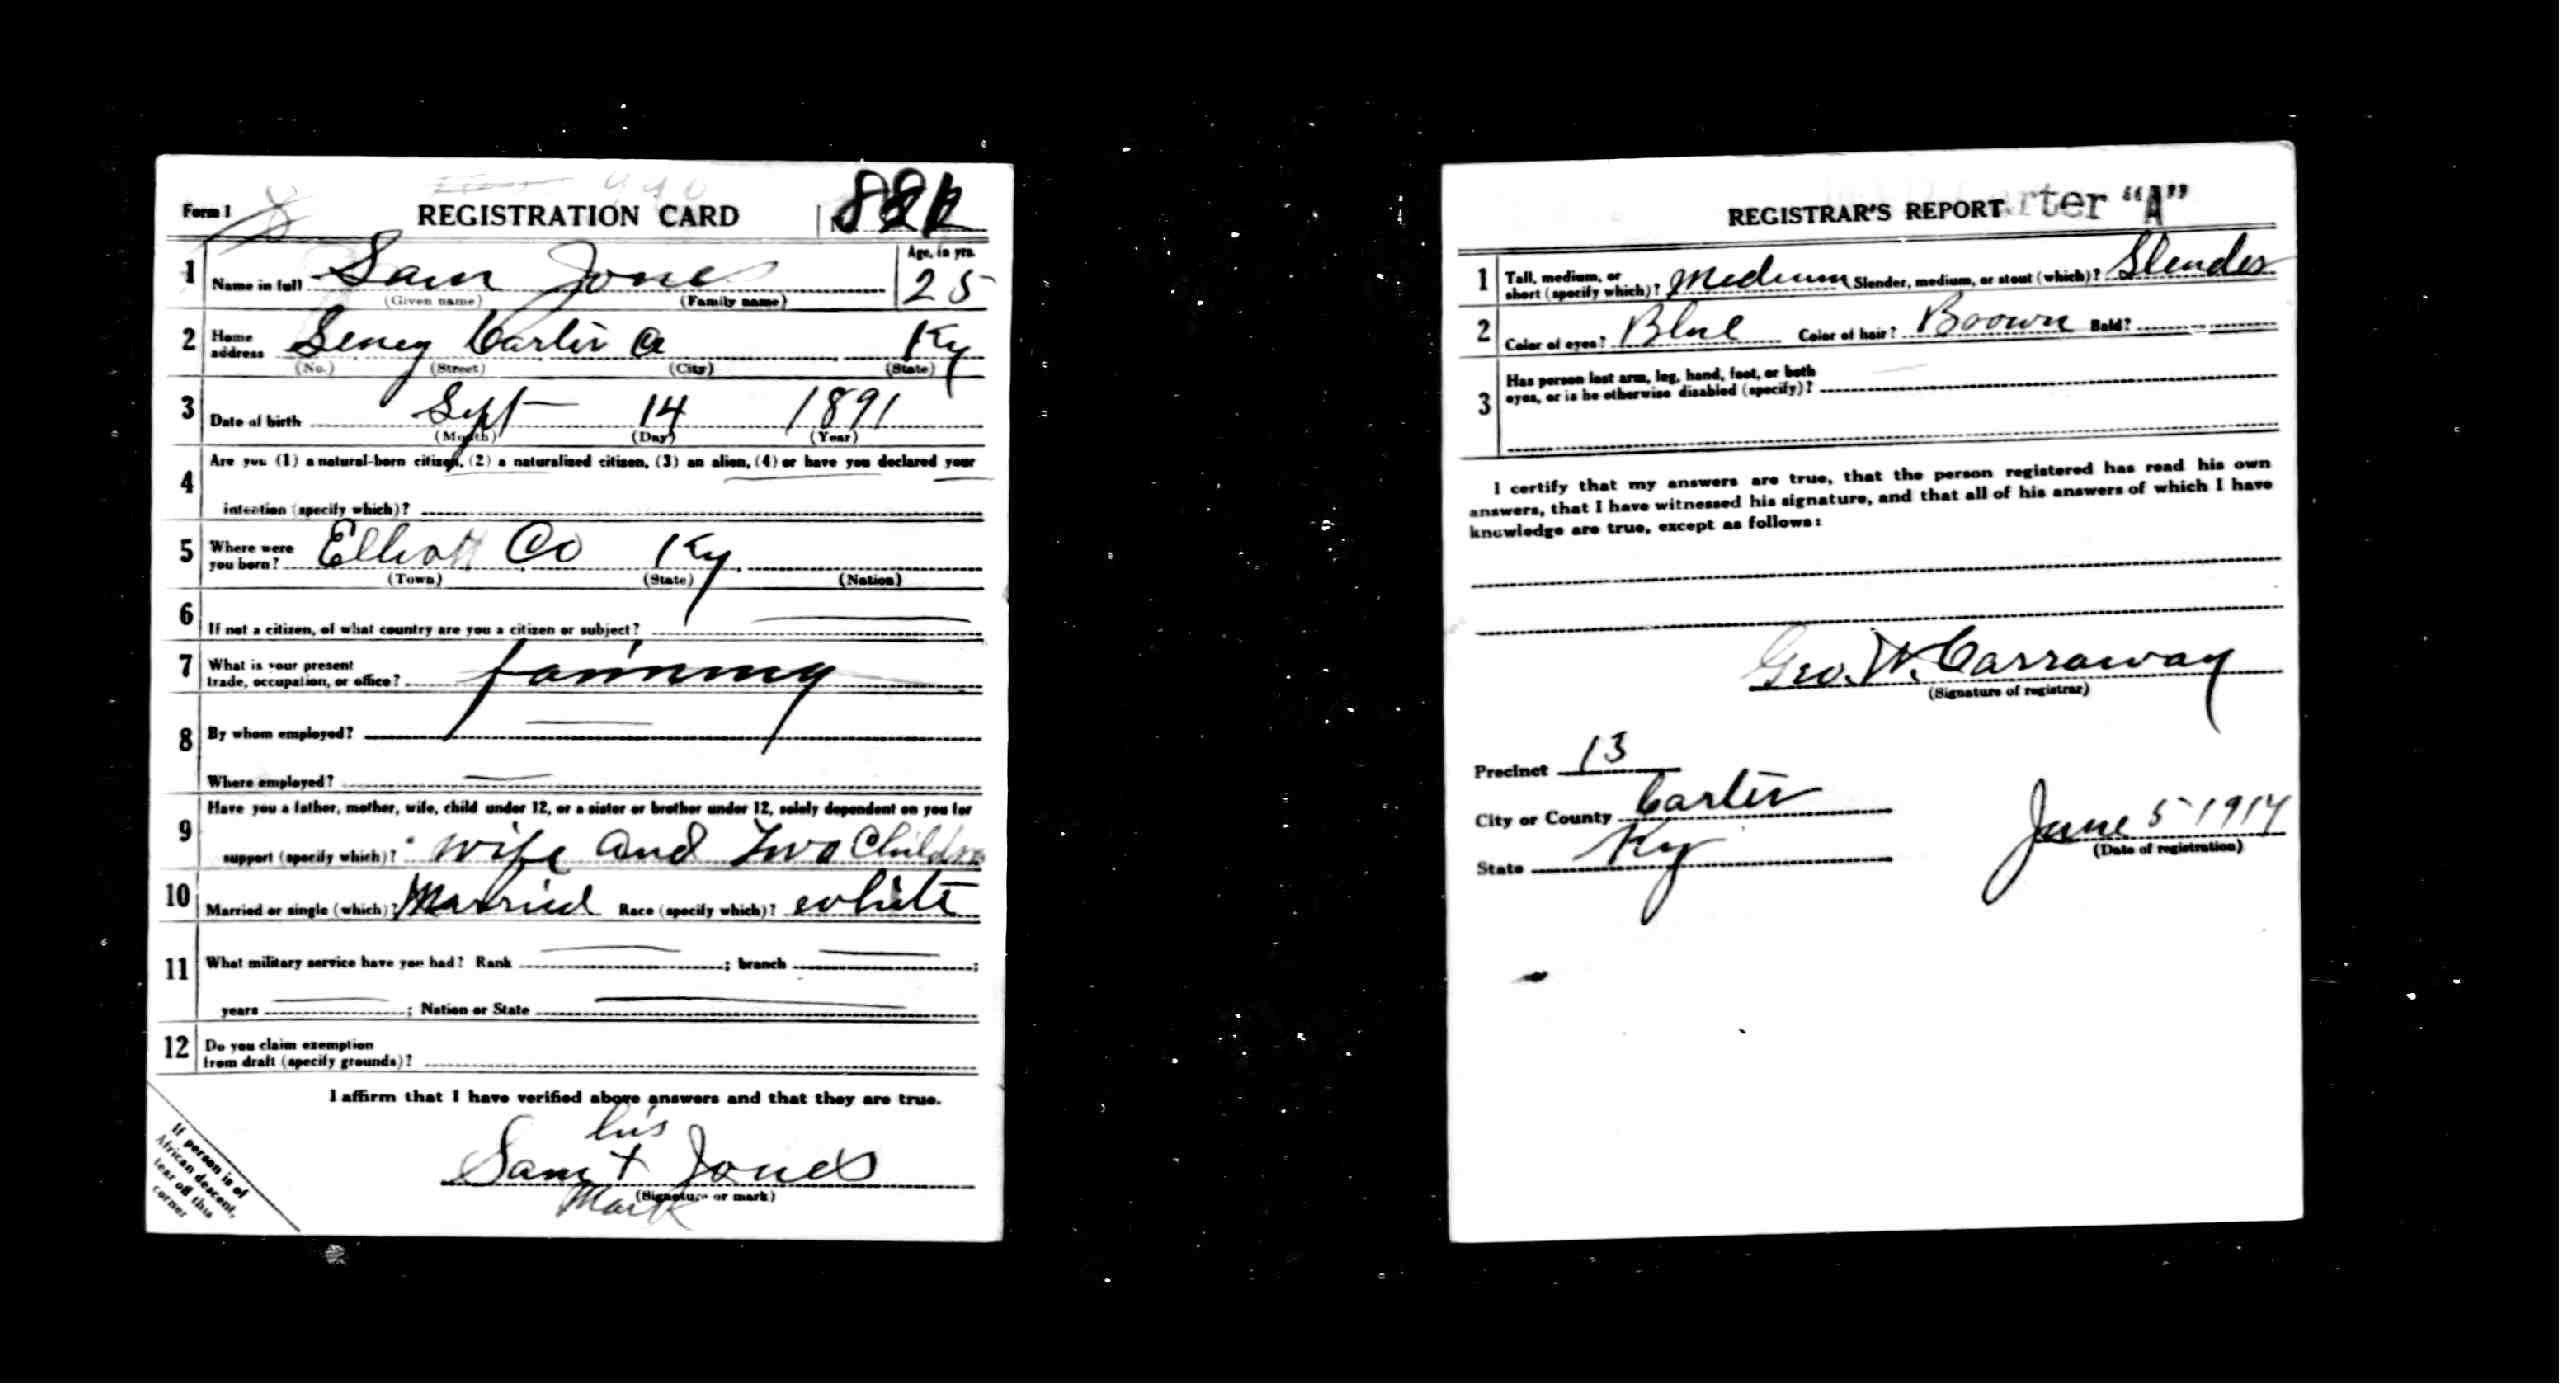 Form 1
REGISTRATION CARD
1 Name in full Sam Jones Age, in yrs. 25
(Given name) (Family name)
2 Home address Carter Co Ky
(No.) (Street) (City) (State)
3 Date of birth Sept 14 1891
(Month) (Day) (Year)
4 Are you (1) a natural-born citizen, (2) a naturalized citizen, (3) an alien, (4) or have you declared your
intention (specify which)?
5 Where were you born? Elliott Co Ky
(Town) (State) (Nation)
6 If not a citizen, of what country are you a citizen or subject?
7 What is your present trade, occupation, or office? farming
8 By whom employed?
Where employed?
9 Have you a father, mother, wife, child under 12, or a sister or brother under 12, solely dependent on you for
support (specify which)? Wife and Two Children
10 Married or single (which)? Married Race (specify which)? white
11 What military service have you had? Rank ; branch ;
years ; Nation or State
12 Do you claim exemption
from draft (specify grounds)?
I affirm that I have verified above answers and that they are true.
his
Sam + Jones
(Signature or mark)
Mark
If person is of
African descent,
tear off this
corner
rter "A"
REGISTRAR'S REPORT
1 Tall, medium, or short (specify which)? Medium Slender, medium, or stout (which)? Slender
2 Color of eyes? Blue Color of hair? Broown Bald?
3 Has person lost arm, leg, hand, foot, or both
eyes, or is he otherwise disabled (specify)?
I certify that my answers are true, that the person registered has read his own
answers, that I have witnessed his signature, and that all of his answers of which I have
knowledge are true, except as follows:
Geo. W. Carraway
(Signature of registrar)
Precinct 13
City or County Carter
State Ky
June 5 1917
(Date of registration)